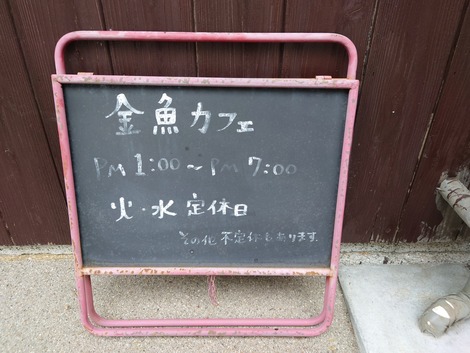 金魚カフェ
PM 1:00〜PM 7:00
火・水 定休日
その他 不定休もあります.